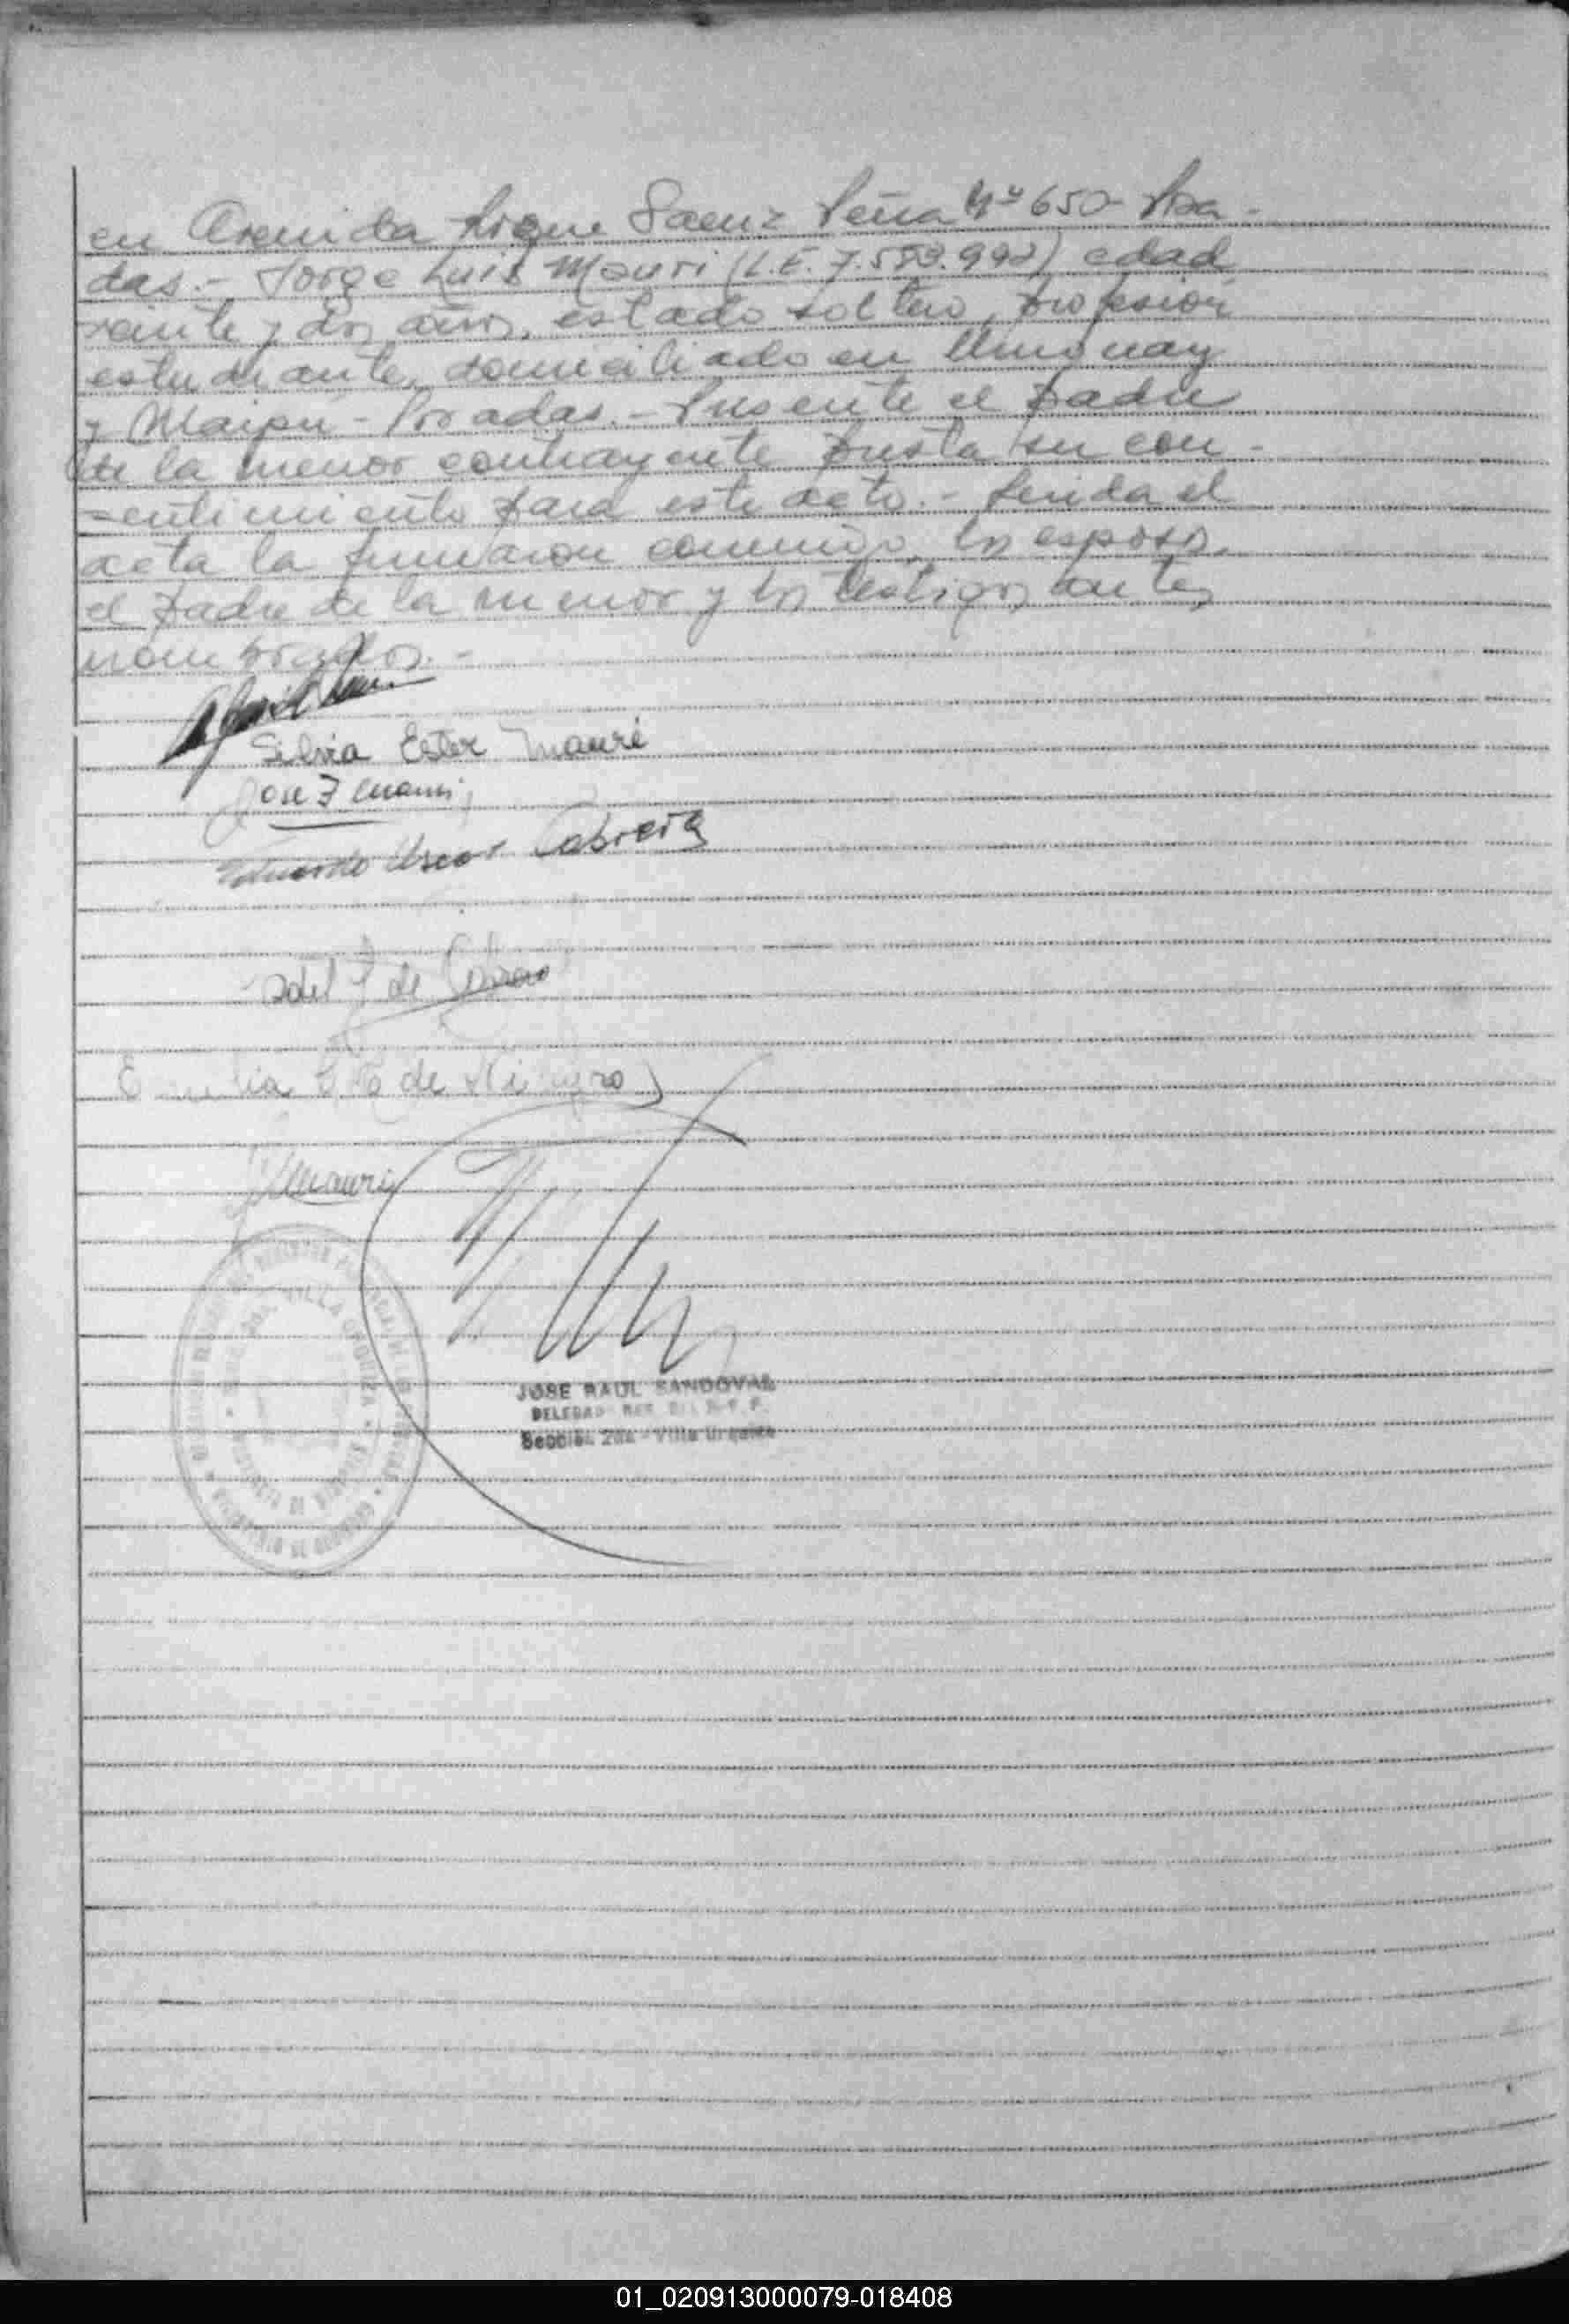 en Avenida Roque Saenz Peña Nº 650- Posa-
das.- Jorge Luis Mauri (L.E. 7.593.992) edad
veinte y dos años, estado soltero, profesión
estudiante, domiciliado en Uruguay
y Maipu - Posadas.- Presente el padre
de la menor contrayente presta su con-
sentimiento para este acto.- Leida el
acta la firmaron conmigo, los esposos,
el padre de la menor y los testigos antes
nombrados.-
Silvia Ester Mauri
Jose F Mauri
Eduardo Oscar Cabrera
de
de
JMauri
VILLA URQUIZA
MINISTERIO DE GOBIERNO
JOSE RAUL SANDOVAL
Sección 2da - Villa Urquiza
01_020913000079-018408